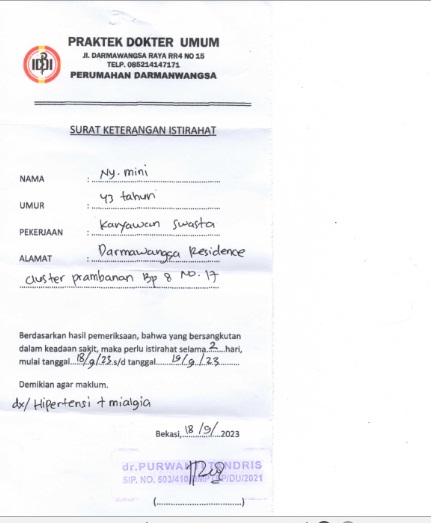 PRAKTEK DOKTER UMUM
JL. DARMAWANGSA RAYA RR4 NO 15
TELP. 085214147171
PERUMAHAN DARMANWANGSA
SURAT KETERANGAN ISTIRAHAT
NAMA : Ny. mini
UMUR : 43 tahun
PEKERJAAN : Karyawan Swasta
ALAMAT : Darmawangsa Residence
cluster prambanan Bp 8 NO. 17
Berdasarkan hasil pemeriksaan, bahwa yang bersangkutan
dalam keadaan sakit, maka perlu istirahat selama 2 hari,
mulai tanggal 18/9/23 s/d tanggal 19/9/23
Demikian agar maklum.
dx/ Hipertensi + mialgia
Bekasi, 18/9/2023
dr.PURWA
SIP. NO. 503/410
/DU/2021